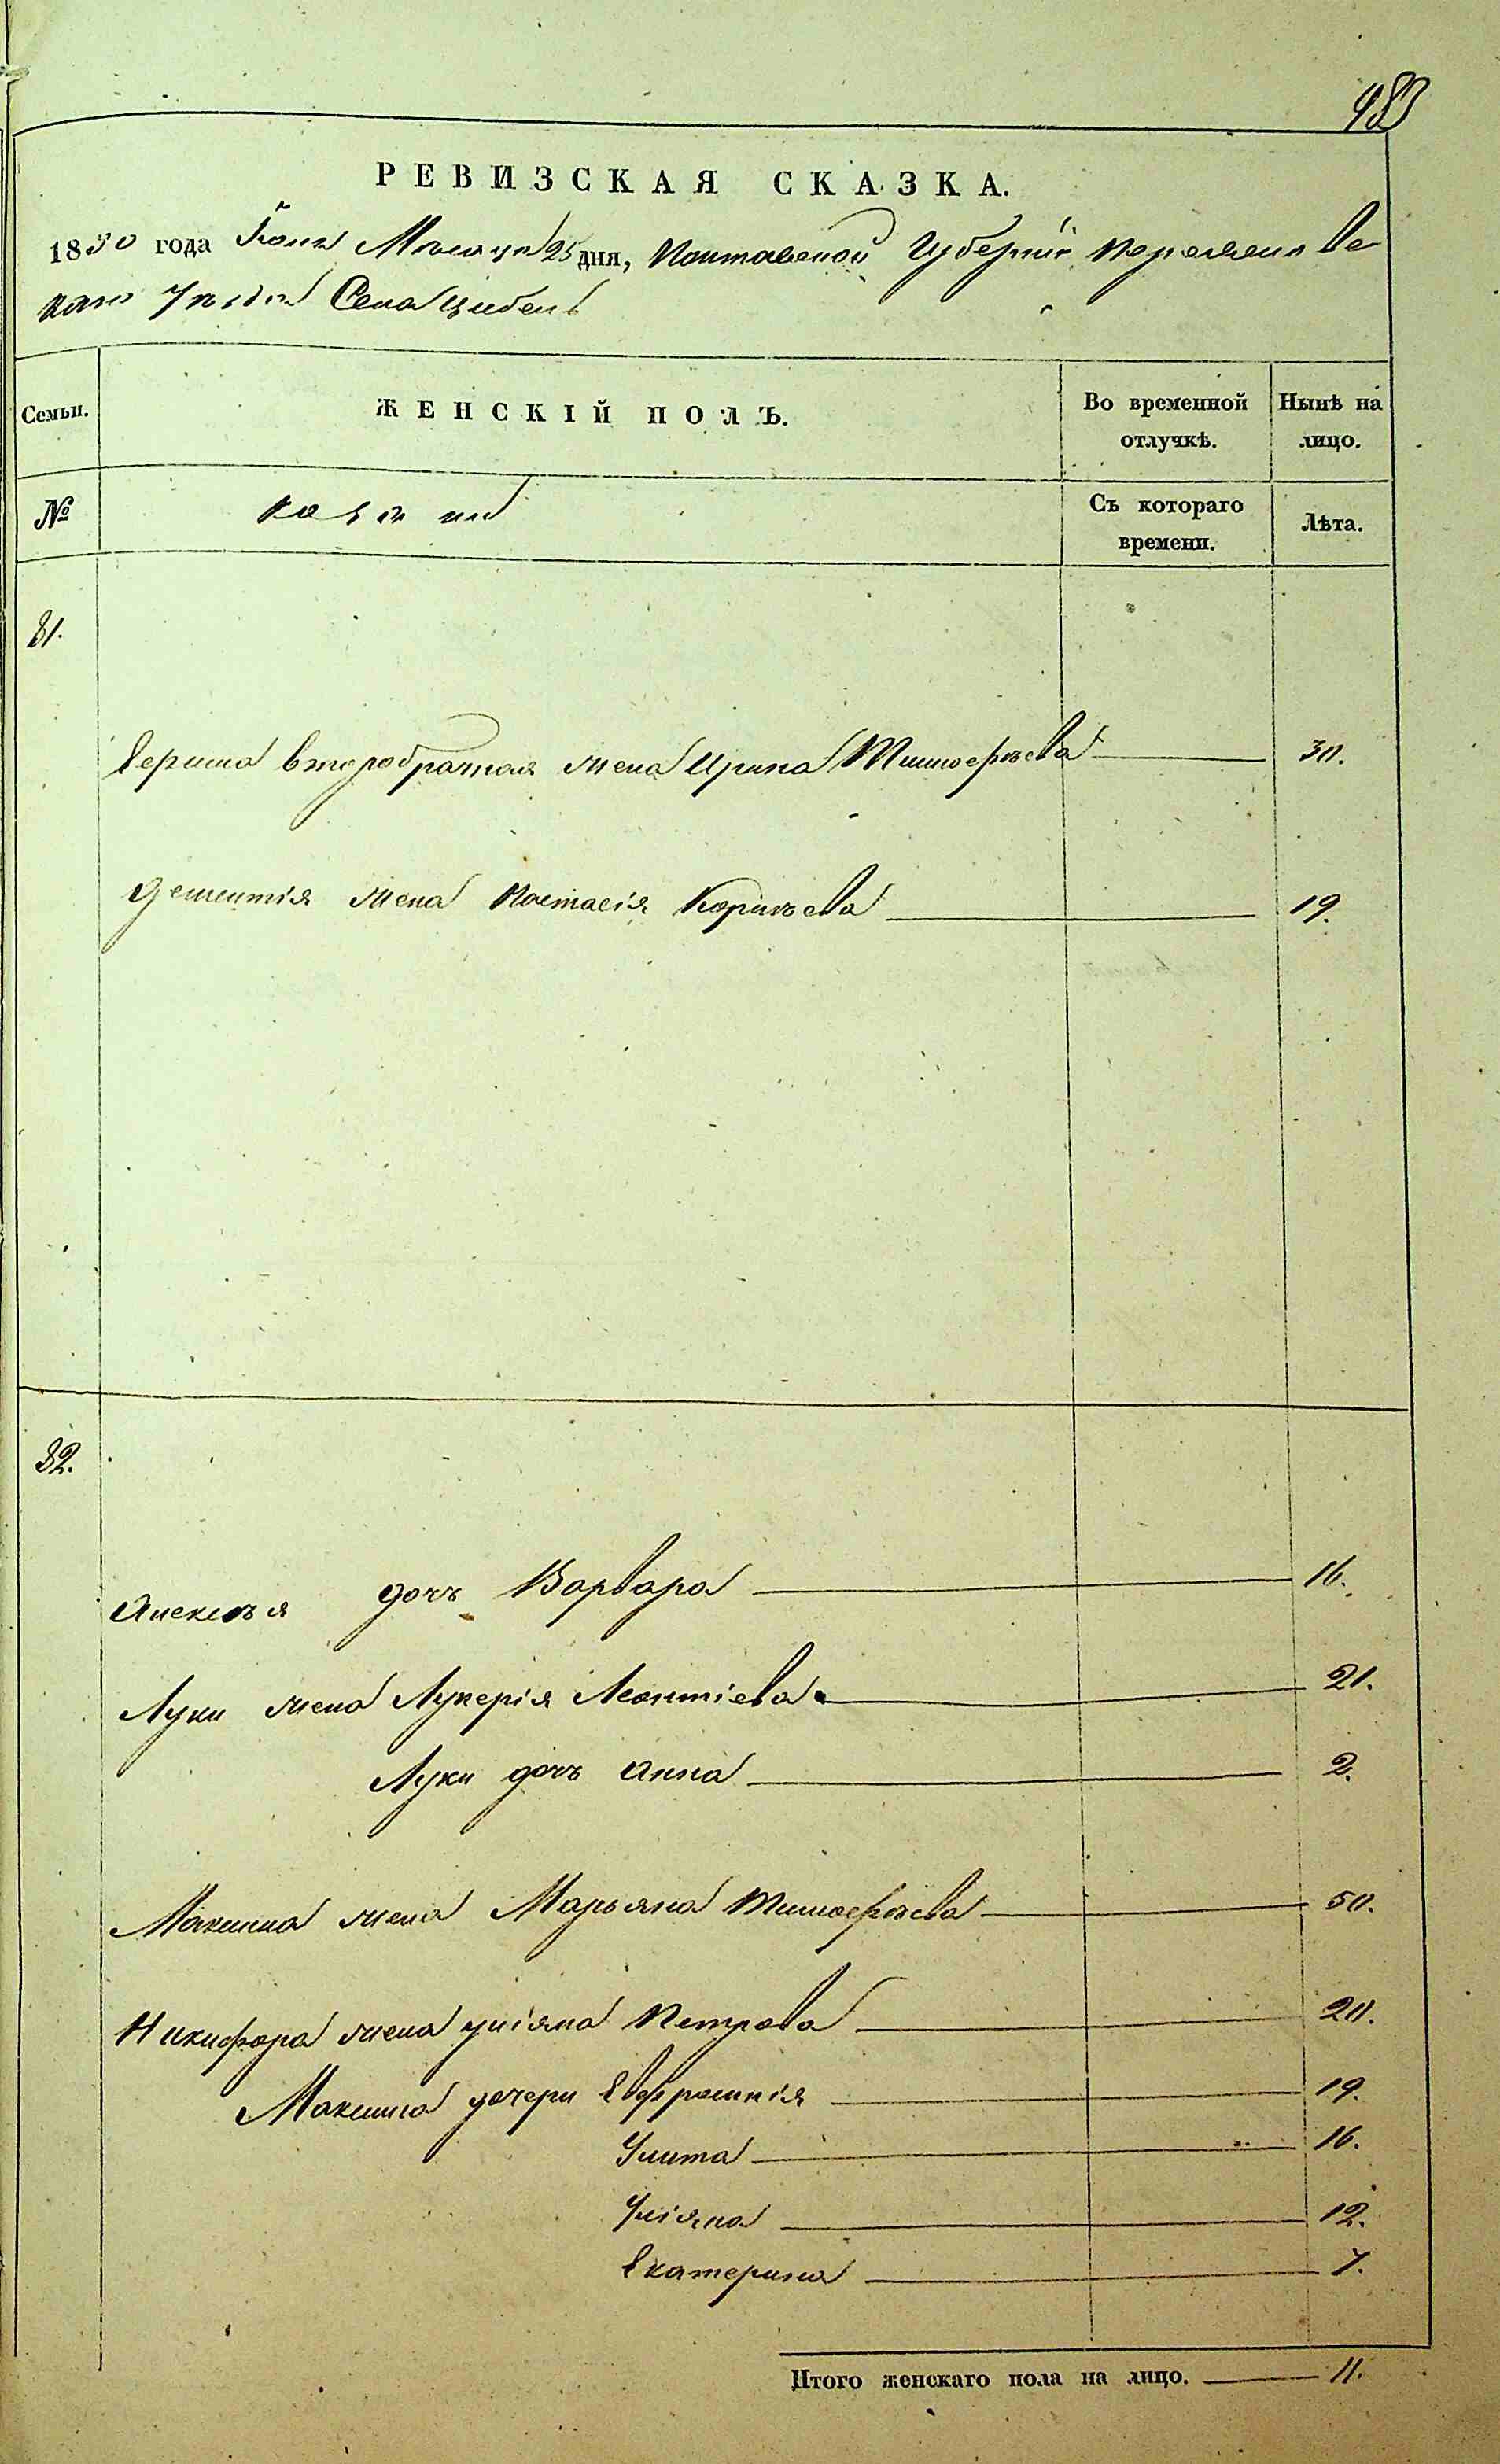 483
РЕВИЗСКАЯ СКАЗКА.
1850 года Іюня Мѣсяца 25 дня, Полтавской Губерніи Переяслав
скаго Уѣзда Села Цибель
Семьи.
ЖЕНСКІЙ ПОЛЪ.
Во временной отлучкѣ.
Нынѣ на лицо.
№
Козаки
Съ котораго времени.
Лѣта.
81.
второбрачная жена Ирина Тимофѣева 30.
Дементія жена Настасія Корнѣева 19.
82.
Алексѣя дочь Варвара 16.
Луки жена Лукерія Леонтіева 21.
Луки дочь Анна 2.
Максима жена Марьяна Тимофѣева 50.
Никифора жена Уліяна Петрова 20.
Максима дочери Евфросинія 19.
Улита 16.
Уліяна 12.
Екатерина 7.
Итого женскаго пола на лицо. 11.